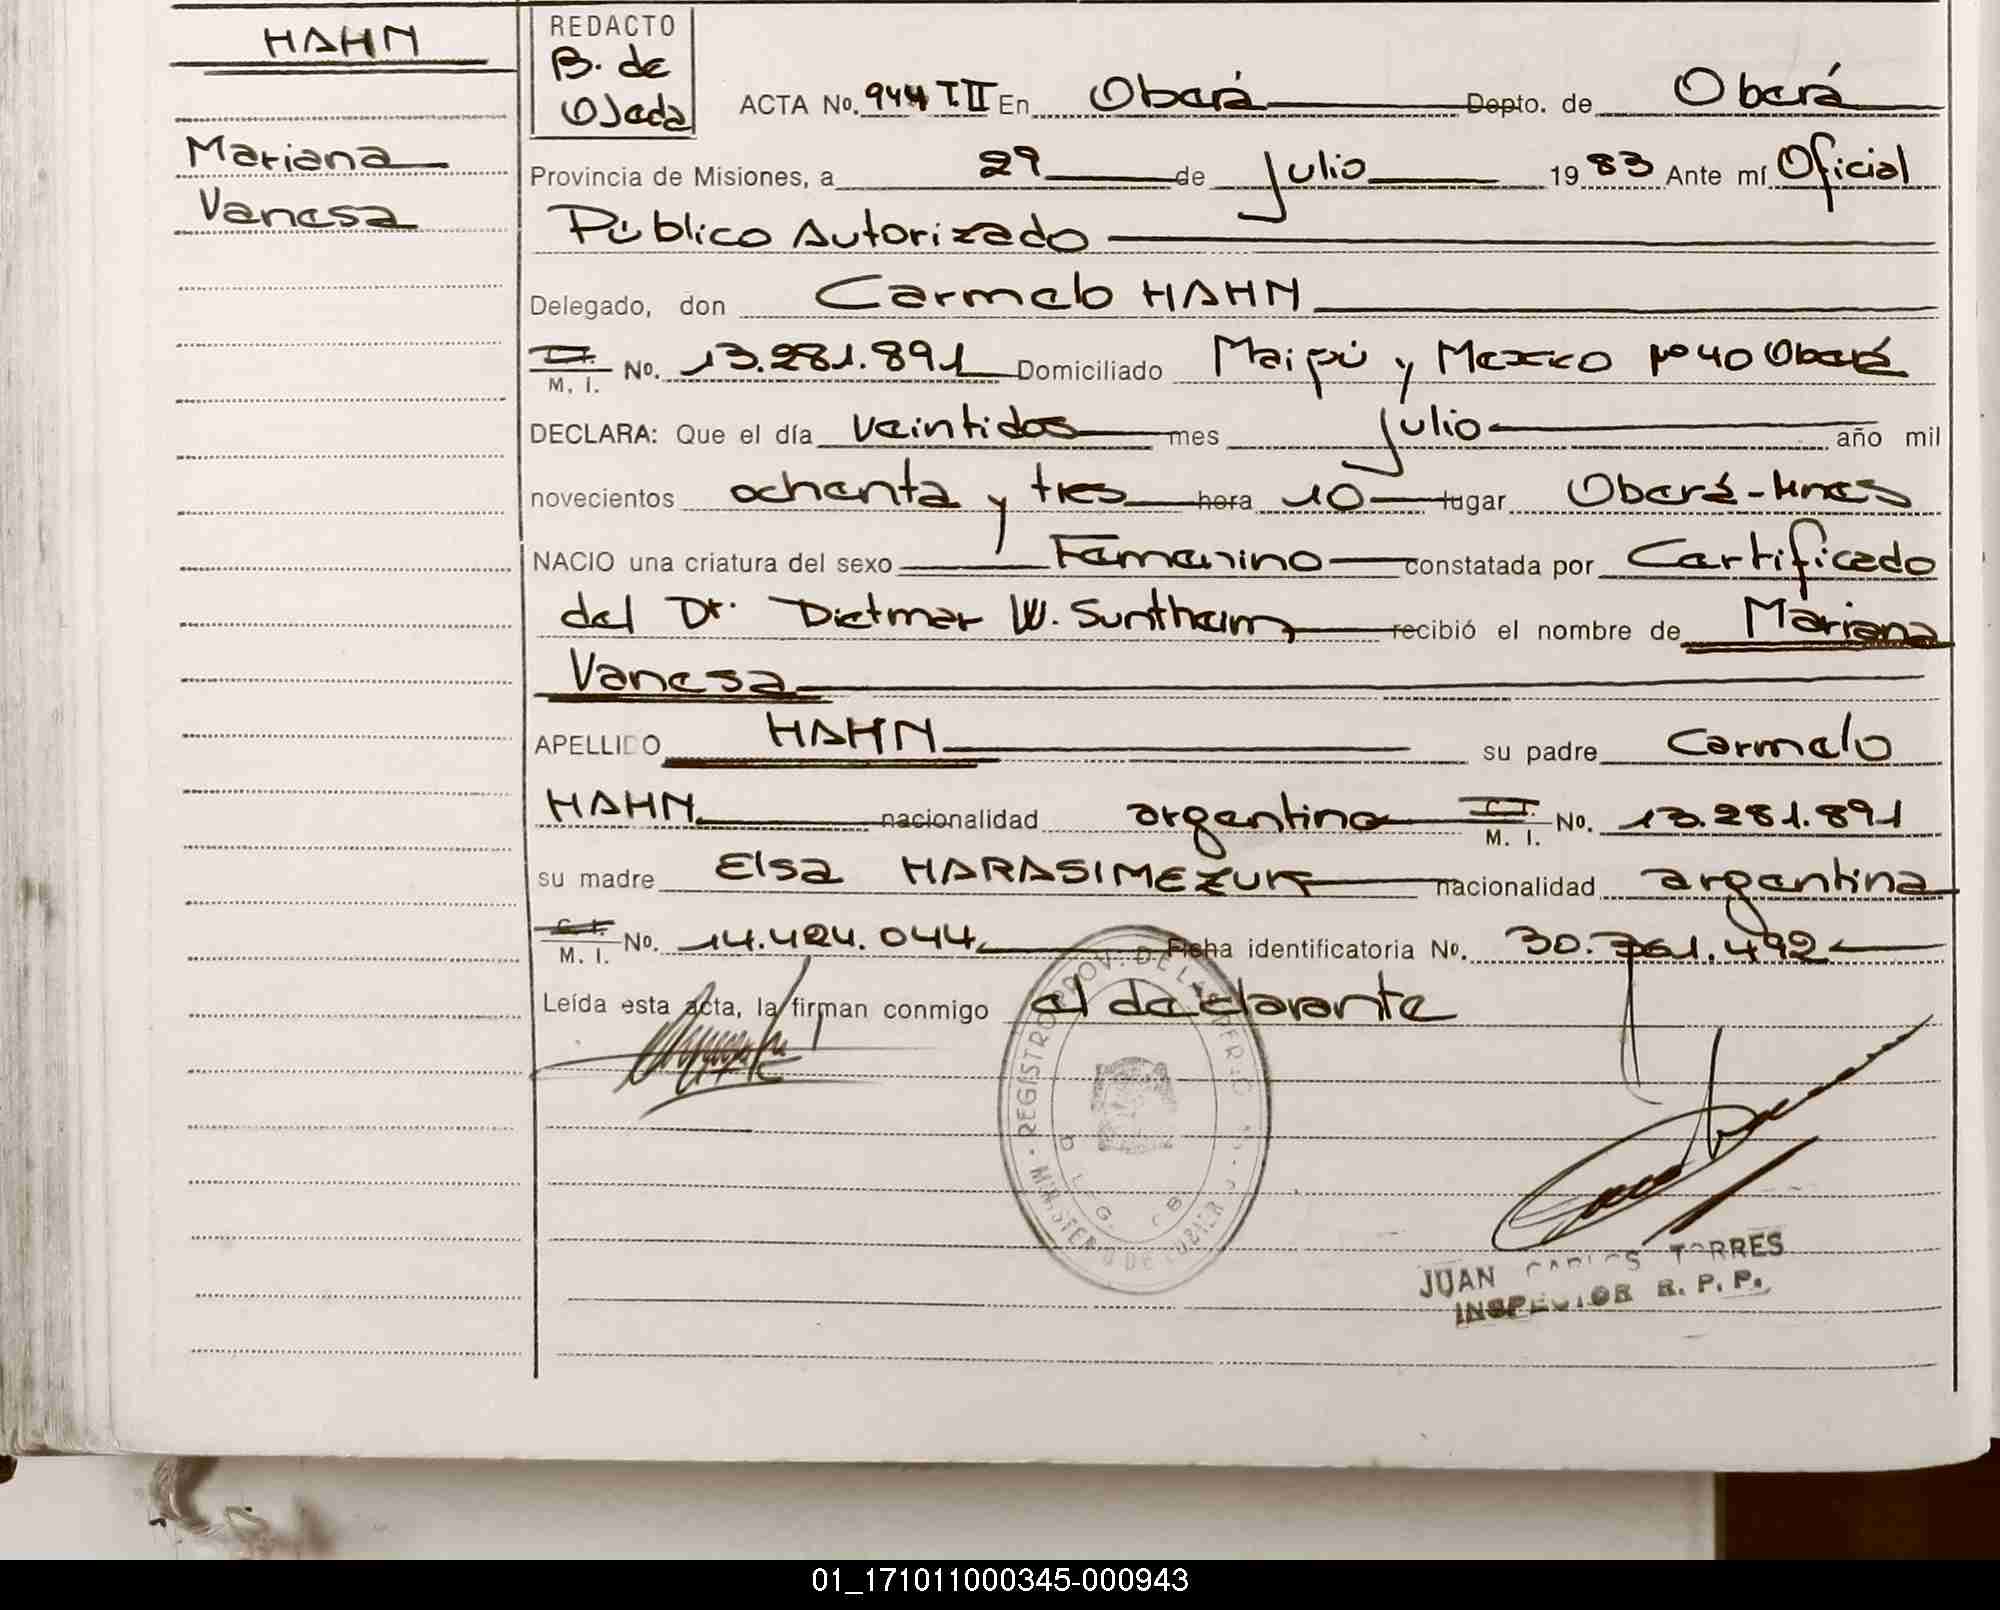 HAHN
Mariana
Vanesa
REDACTO
B. de
Ojeda
ACTA No. 944 T.II En Oberá Depto. de Oberá
Provincia de Misiones, a 29 de Julio 19 83 Ante mí Oficial
Público Autorizado
Delegado, don Carmelo HAHN
C.I. M. I. No. 13.281.891 Domiciliado Maipú y Mexico Nº 40 Oberá
DECLARA: Que el día veintidos mes Julio año mil
novecientos ochenta y tres hora 10 lugar Oberá-Mnes
NACIO una criatura del sexo Femenino constatada por Certificado
del Dr. Dietmar W. Suntheim recibió el nombre de Mariana
Vanesa
APELLIDO HAHN su padre Carmelo
HAHN nacionalidad argentino C.I. M. I. No. 13.281.891
su madre Elsa HARASIMEZUK nacionalidad argentina
C.I. M. I. No. 14.424.044 Ficha identificatoria No. 30.361.492
Leída esta acta, la firman conmigo el declarante
REGISTRO PROV. DE LAS PER
MINISTERIO DE GOBIER
JUAN CARLOS TORRES
INSPECTOR R. P. P.
01_171011000345-000943